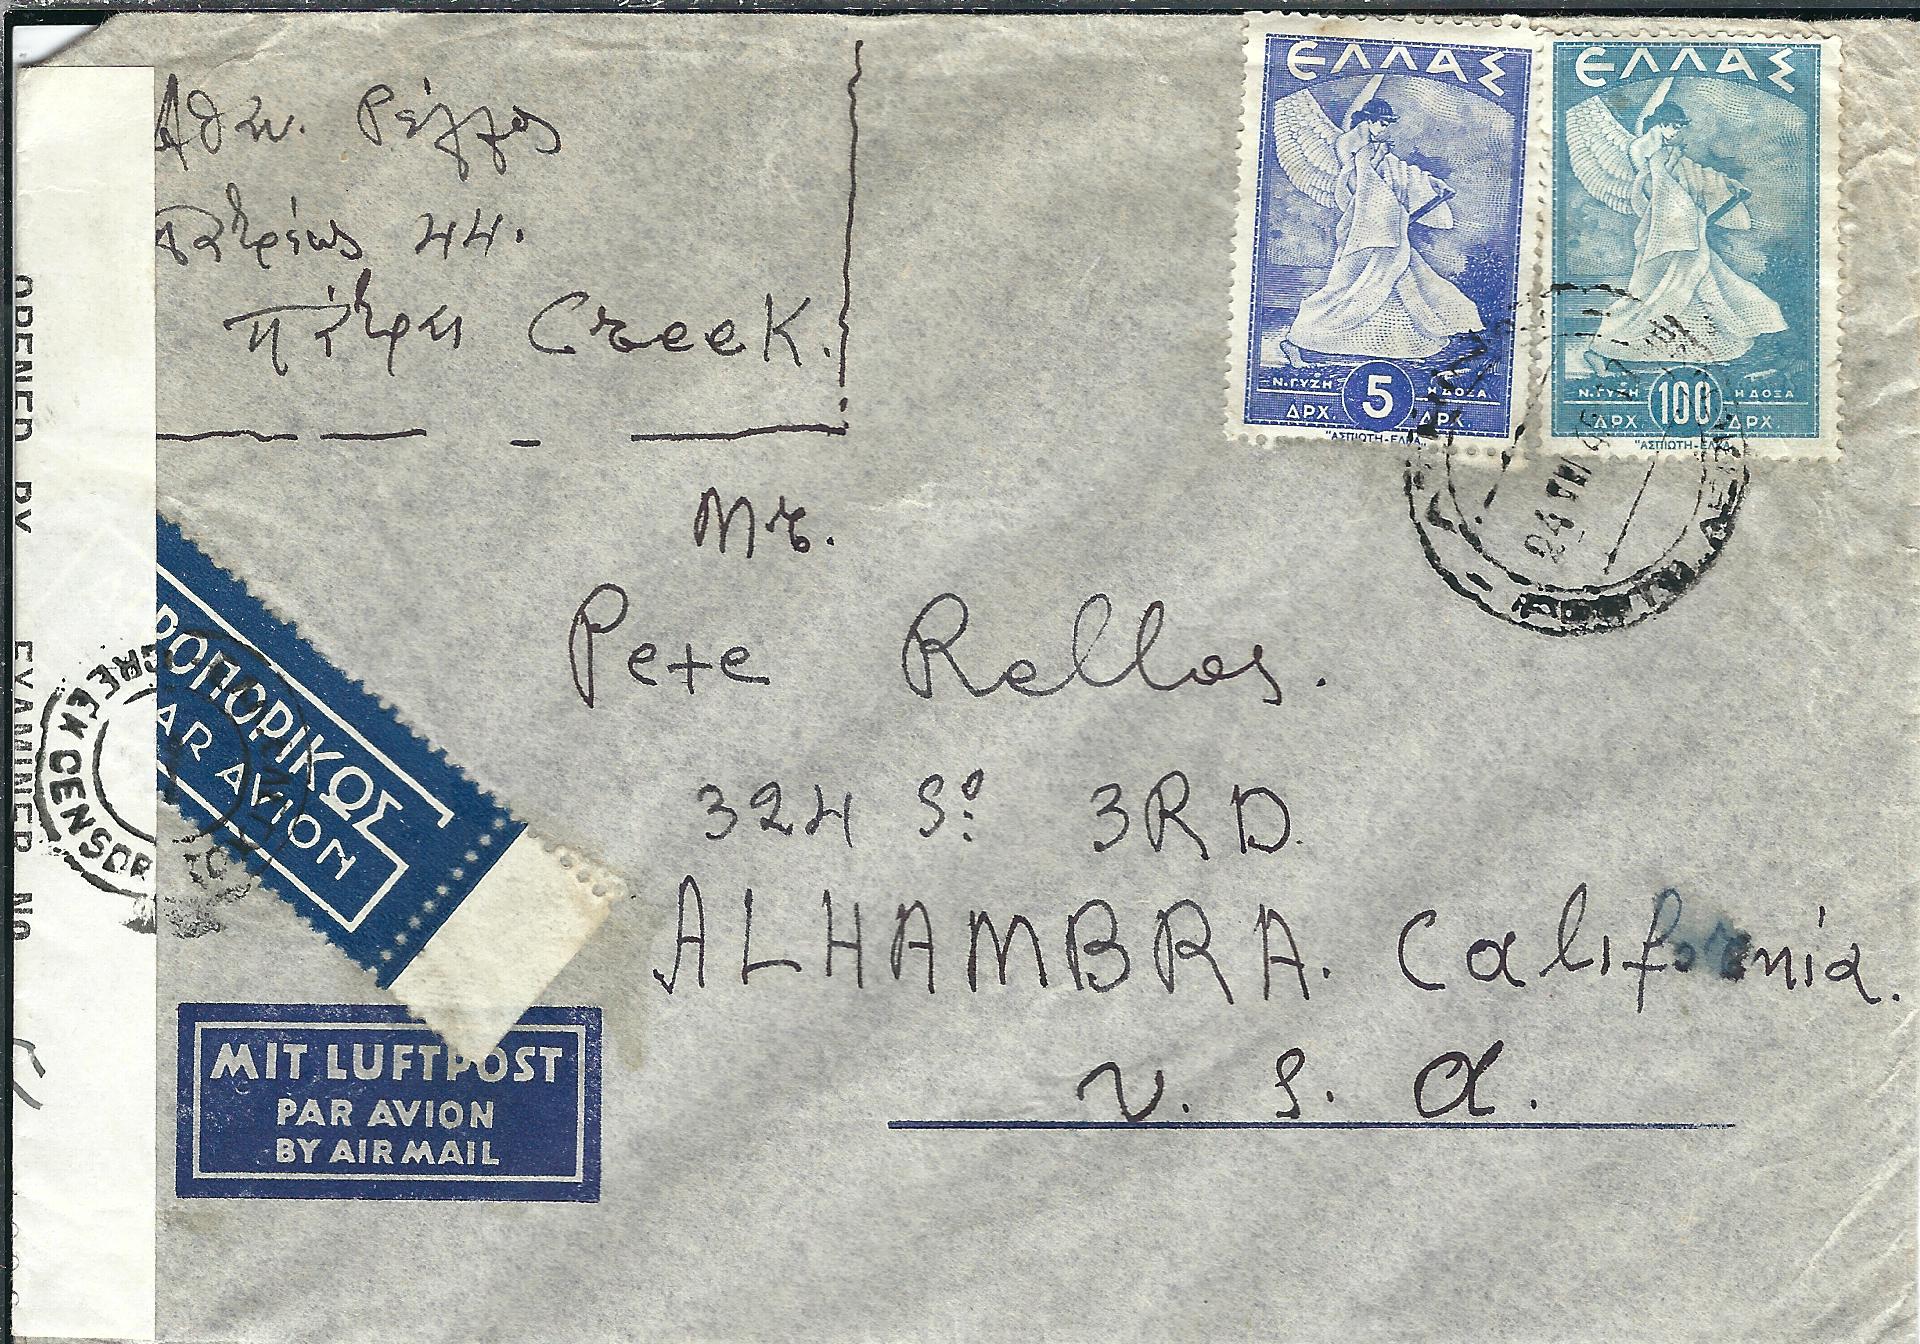 Αθαν. Ρέλλος
Πατρέως 44.
Πάτραι Creek.
ΕΛΛΑΣ
Ν. ΓΥΖΗ 5 Η ΔΟΞΑ
ΔΡΧ. ΔΡΧ.
"ΑΣΠΙΩΤΗ-ΕΛΚΑ"
ΕΛΛΑΣ
Ν. ΓΥΖΗ 100 Η ΔΟΞΑ
ΔΡΧ. ΔΡΧ.
"ΑΣΠΙΩΤΗ-ΕΛΚΑ"
Mr.
Pete Rellos.
324 So: 3RD.
ALHAMBRA. California.
U. S. A.
OPENED BY EXAMINER NO
GREEK CENSOR
ΡΟΠΟΡΙΚΩΣ
AR AVION
MIT LUFTPOST
PAR AVION
BY AIR MAIL